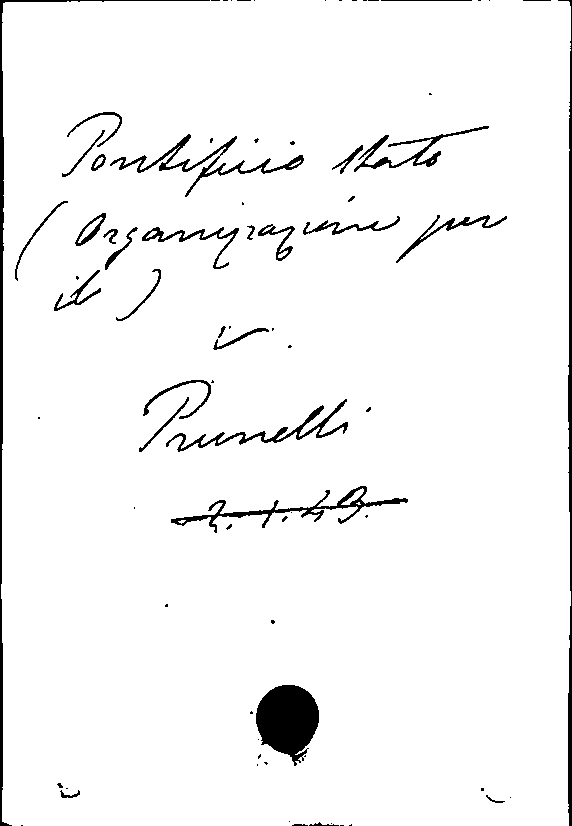 Pontificio Stato
(Organizzazione per
il)
v.
Prunelli
2.1.43.